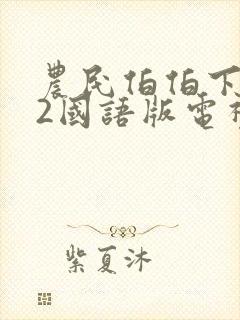 農民伯伯下
2國語版電視
紫夏沐